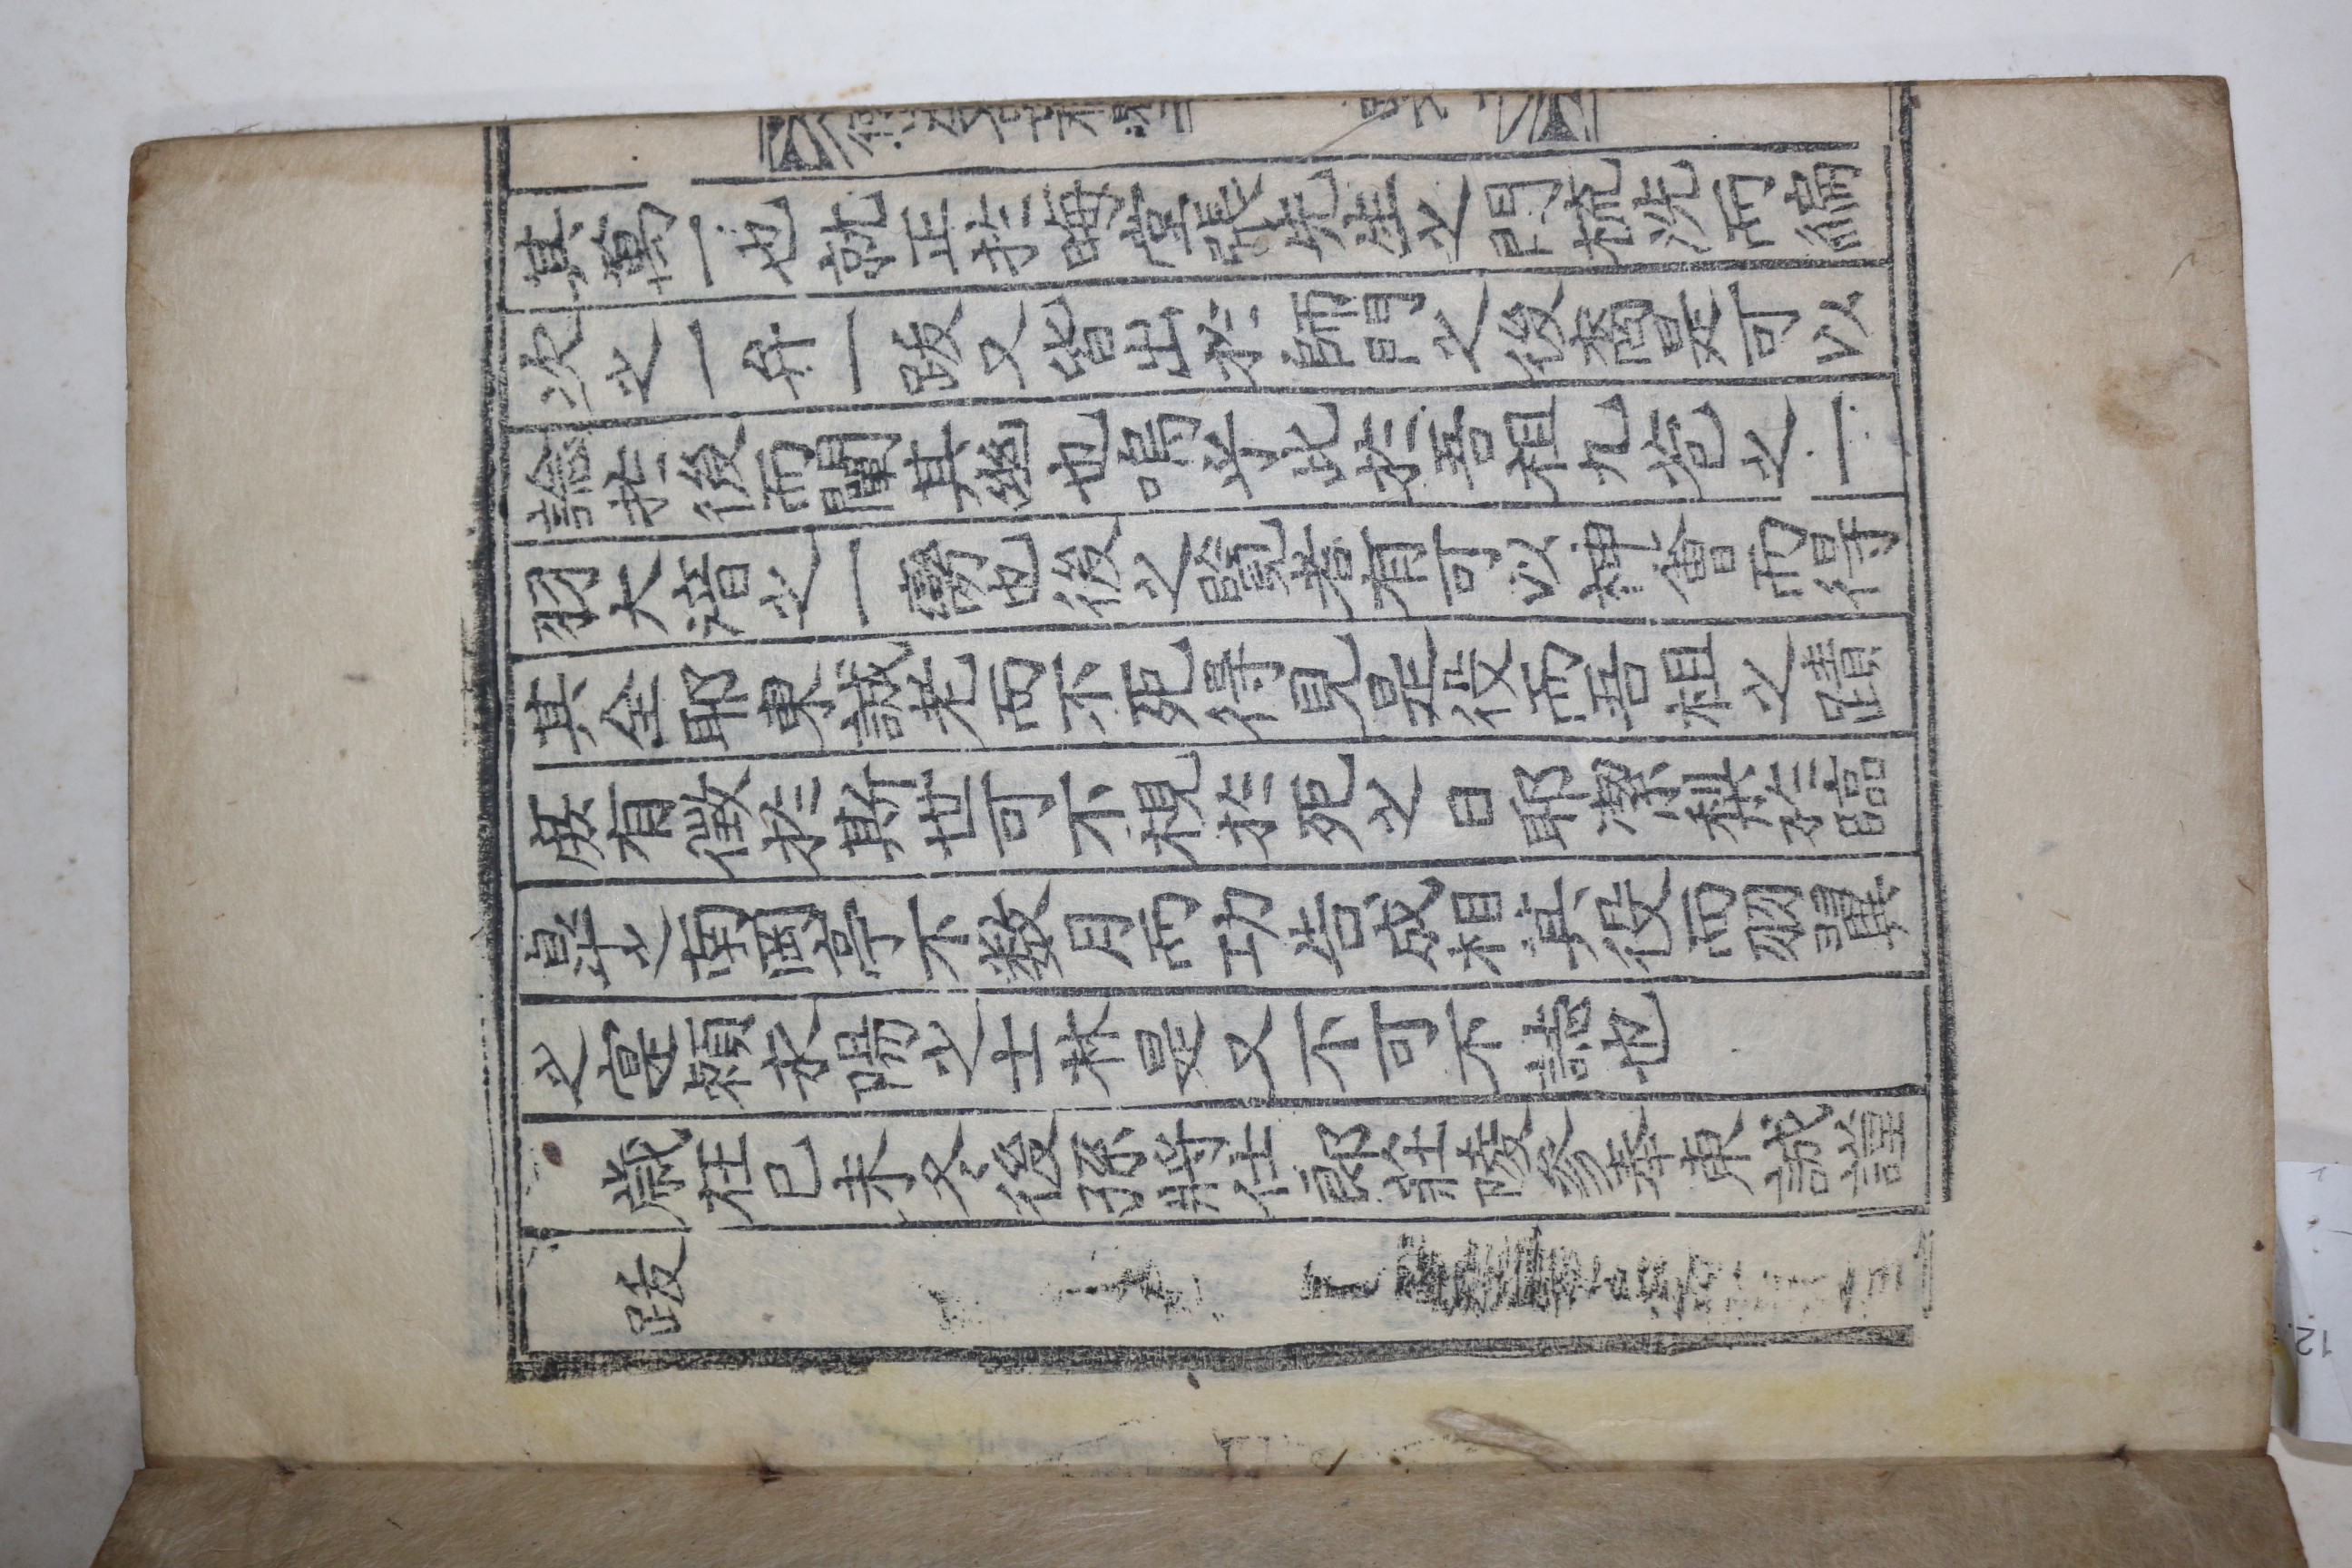 其萬一也就正於晦堂張先生之門梳洗而編
次之一弁一跋又皆出於師門之後裔是可以
諗於後而闡其幽也嗚乎此於吾祖九苞之一
羽大音之一臠也後之覽者有可以神會而得
其全耶東誠老而不死得見是役而吾祖之蹟
庶有徵於斯世可不視於死之日耶潔梨於臨
皐之南岡亭不数月而功告成相其役而羽翼
之寔頼永陽之士林是又不可不誌也
歳在已未冬後孫將仕郎莊陵參奉東誠謹
跋
12